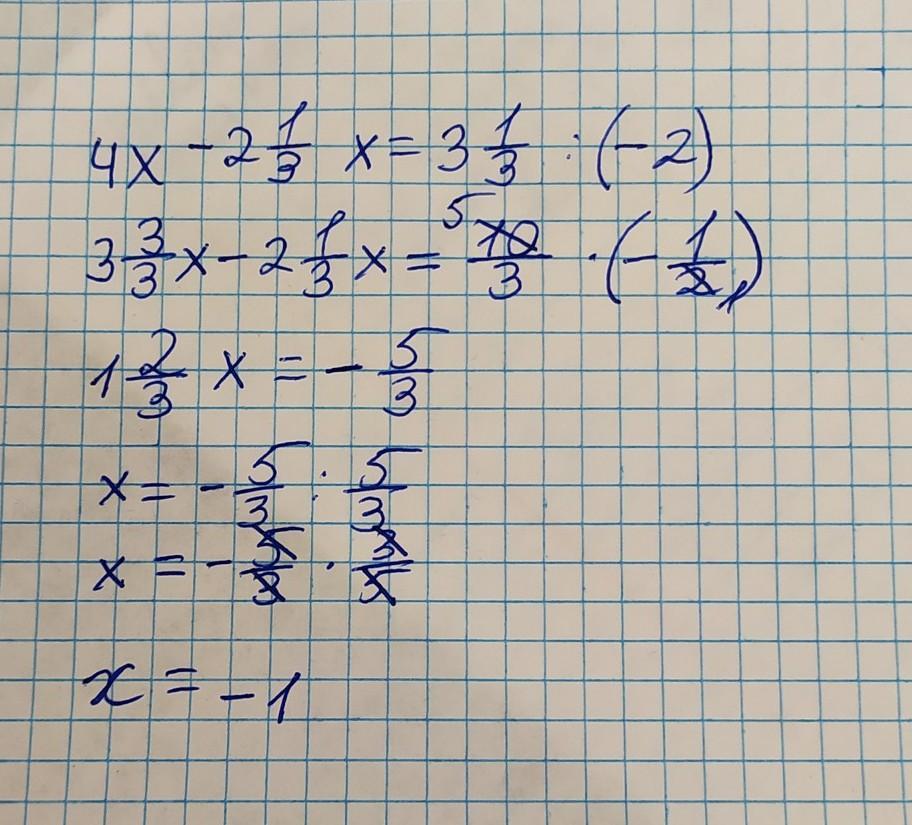 4x - 2 1/3 x = 3 1/3 : (-2)
3 3/3 x - 2 1/3 x = 5 10/3 · (-1/2 1)
1 2/3 x = - 5/3
x = - 5/3 : 5/3
x = - 5/3 · 3/5
x = -1